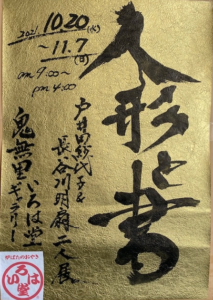 人形と書
2021 10.20(水)
〜11.7(日)
am 9:00〜
pm 4:00
長谷川明扇二人展
鬼無里いろは堂
ギャラリー
いろは堂